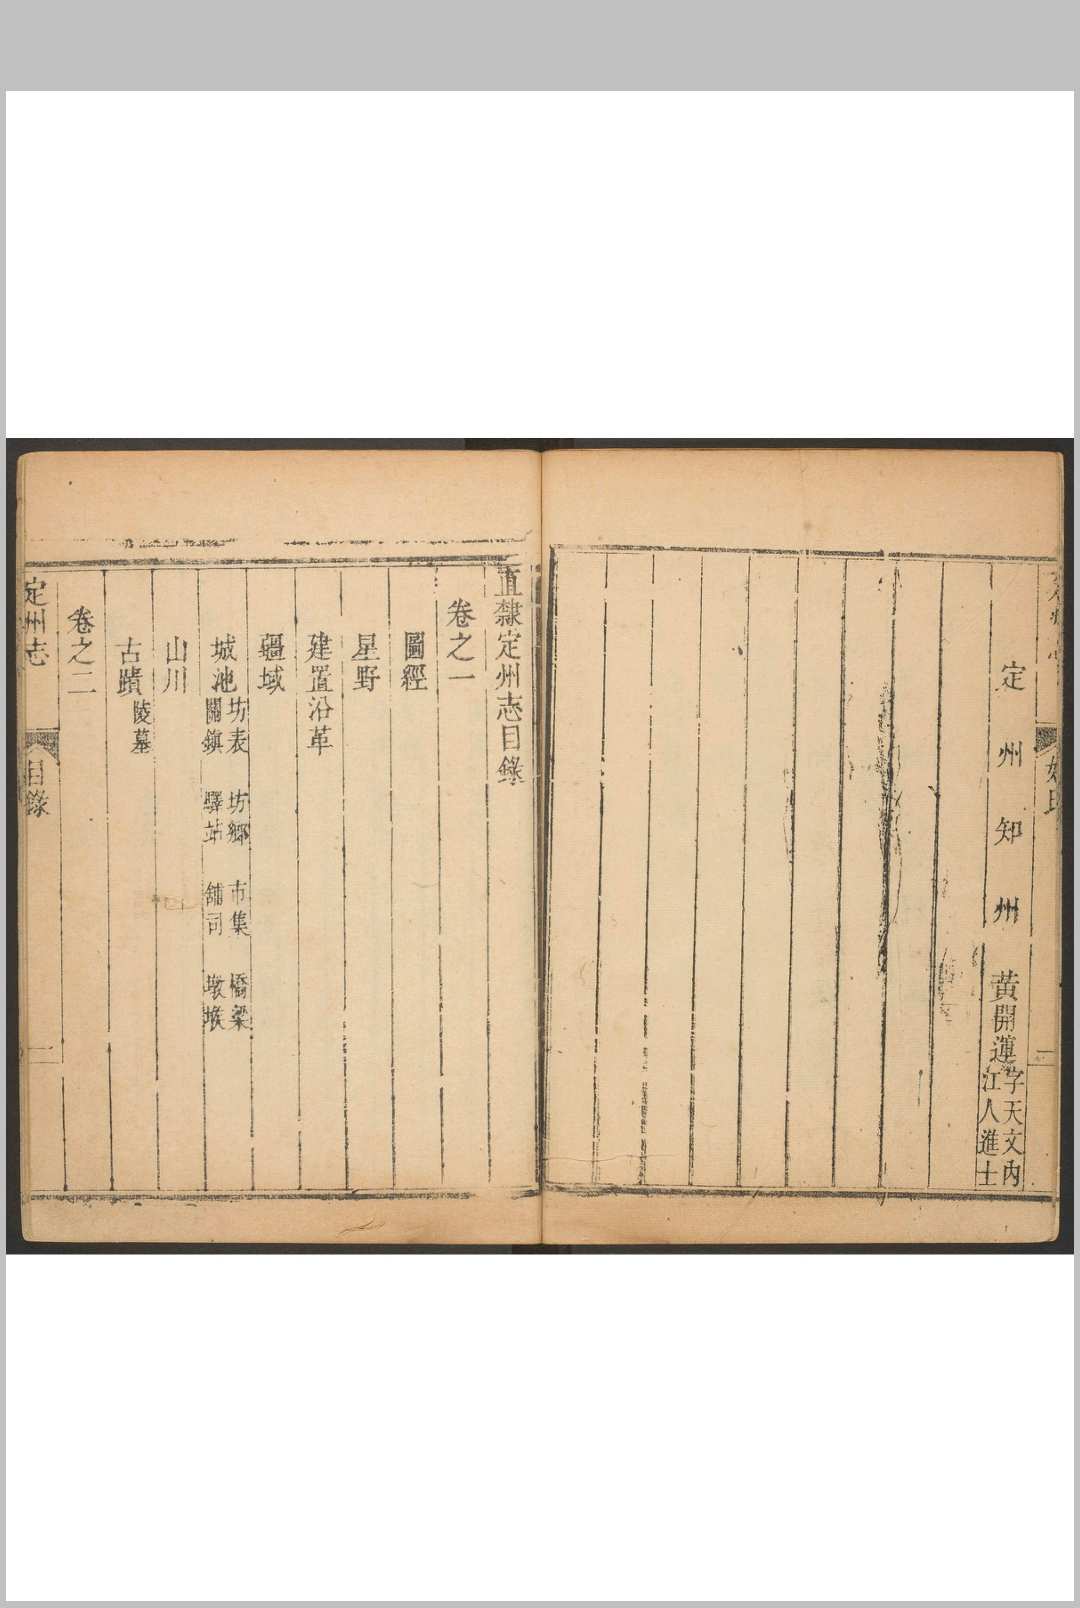 定州知州黃開運字天文內
江人進士
直隸定州志目錄
卷之一
圖經
星野
建置沿革
疆域
城池坊表 坊鄉 市集 橋梁
關鎮 驛站 舖司 墩堠
山川
古蹟陵墓
卷之二
定州志 目錄 一